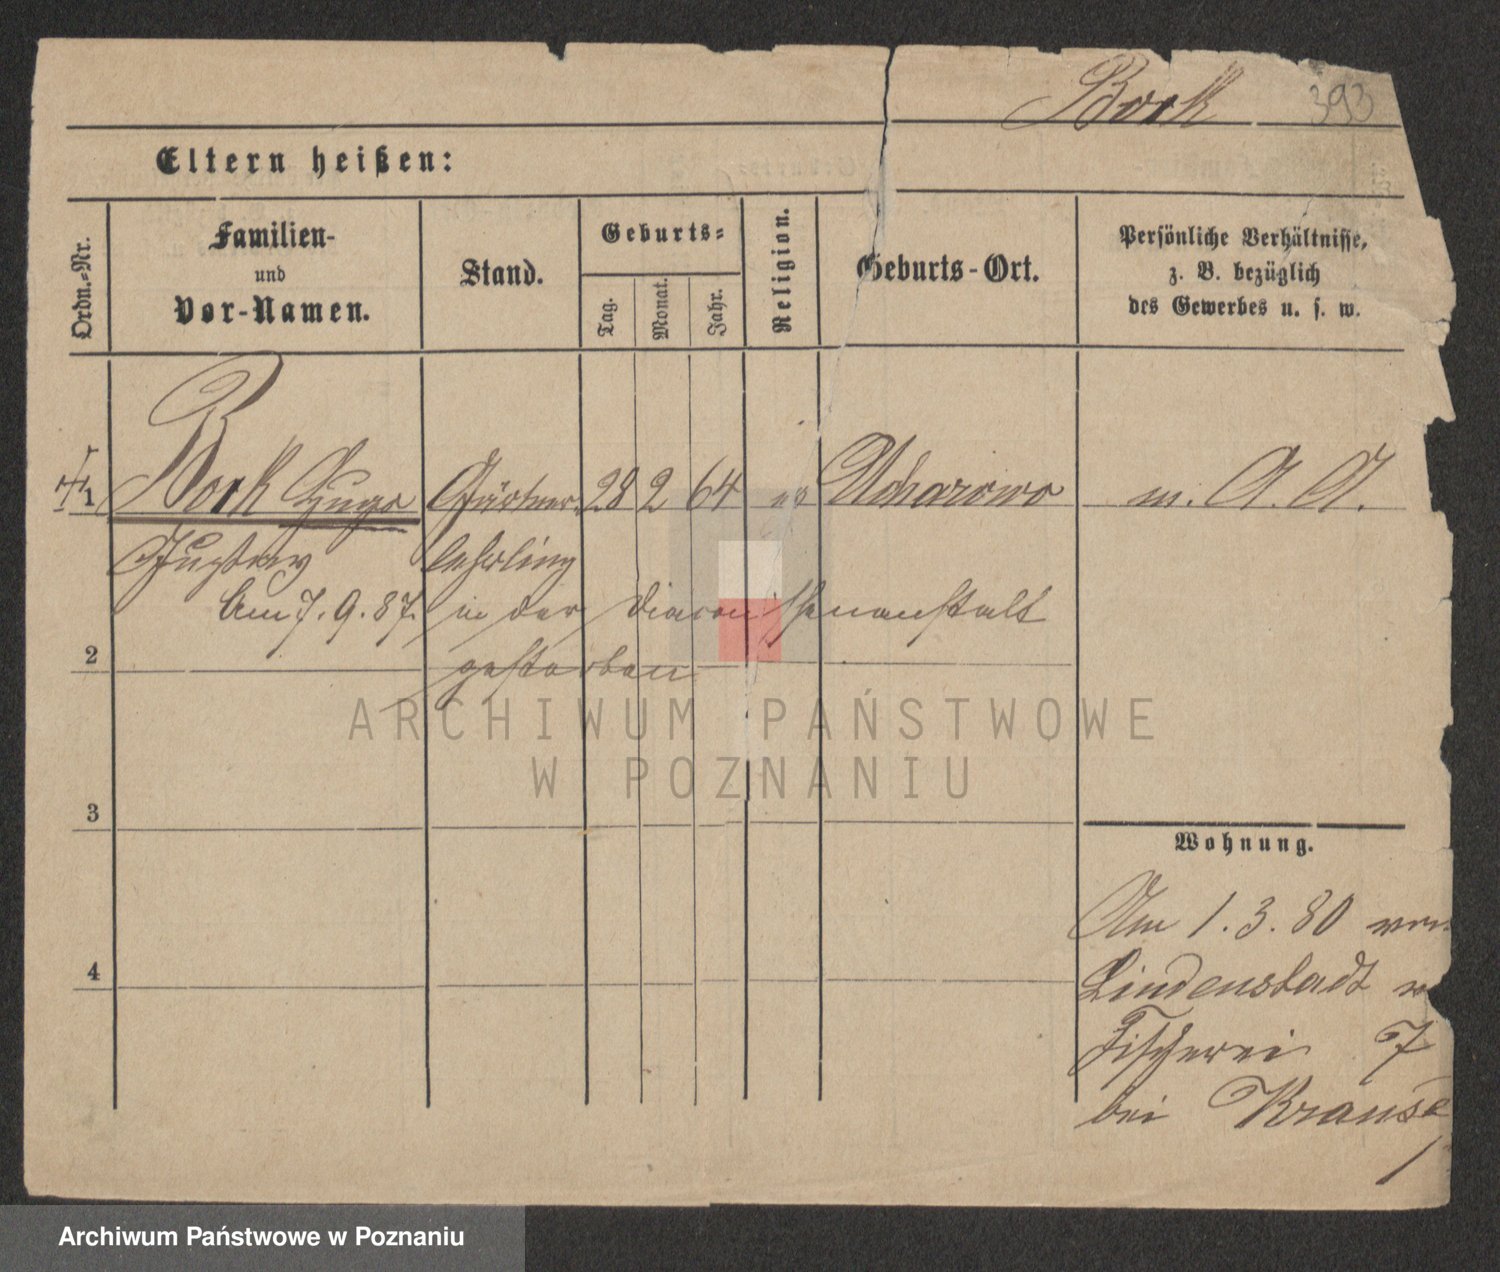 Bork 393
Eltern heißen:
Ordn.-Nr.
Familien-
und
Vor-Namen.
Stand.
Geburts-
Tag.
Monat.
Jahr.
Religion.
Geburts-Ort.
Persönliche Verhältnisse,
z. B. bezüglich
des Gewerbes u. s. w.
1 Bork Hugo Gärtner 28 2 64 ev Ucharowo m. A. A.
Gustav lehrling
Am 7. 9. 87. in der Diaconissenanstalt
2 gestorben
ARCHIWUM PAŃSTWOWE
W POZNANIU
3
Wohnung.
Am 1. 3. 80 von
4 Lindenstadt
Fischerei 7
bei Krause
Archiwum Państwowe w Poznaniu